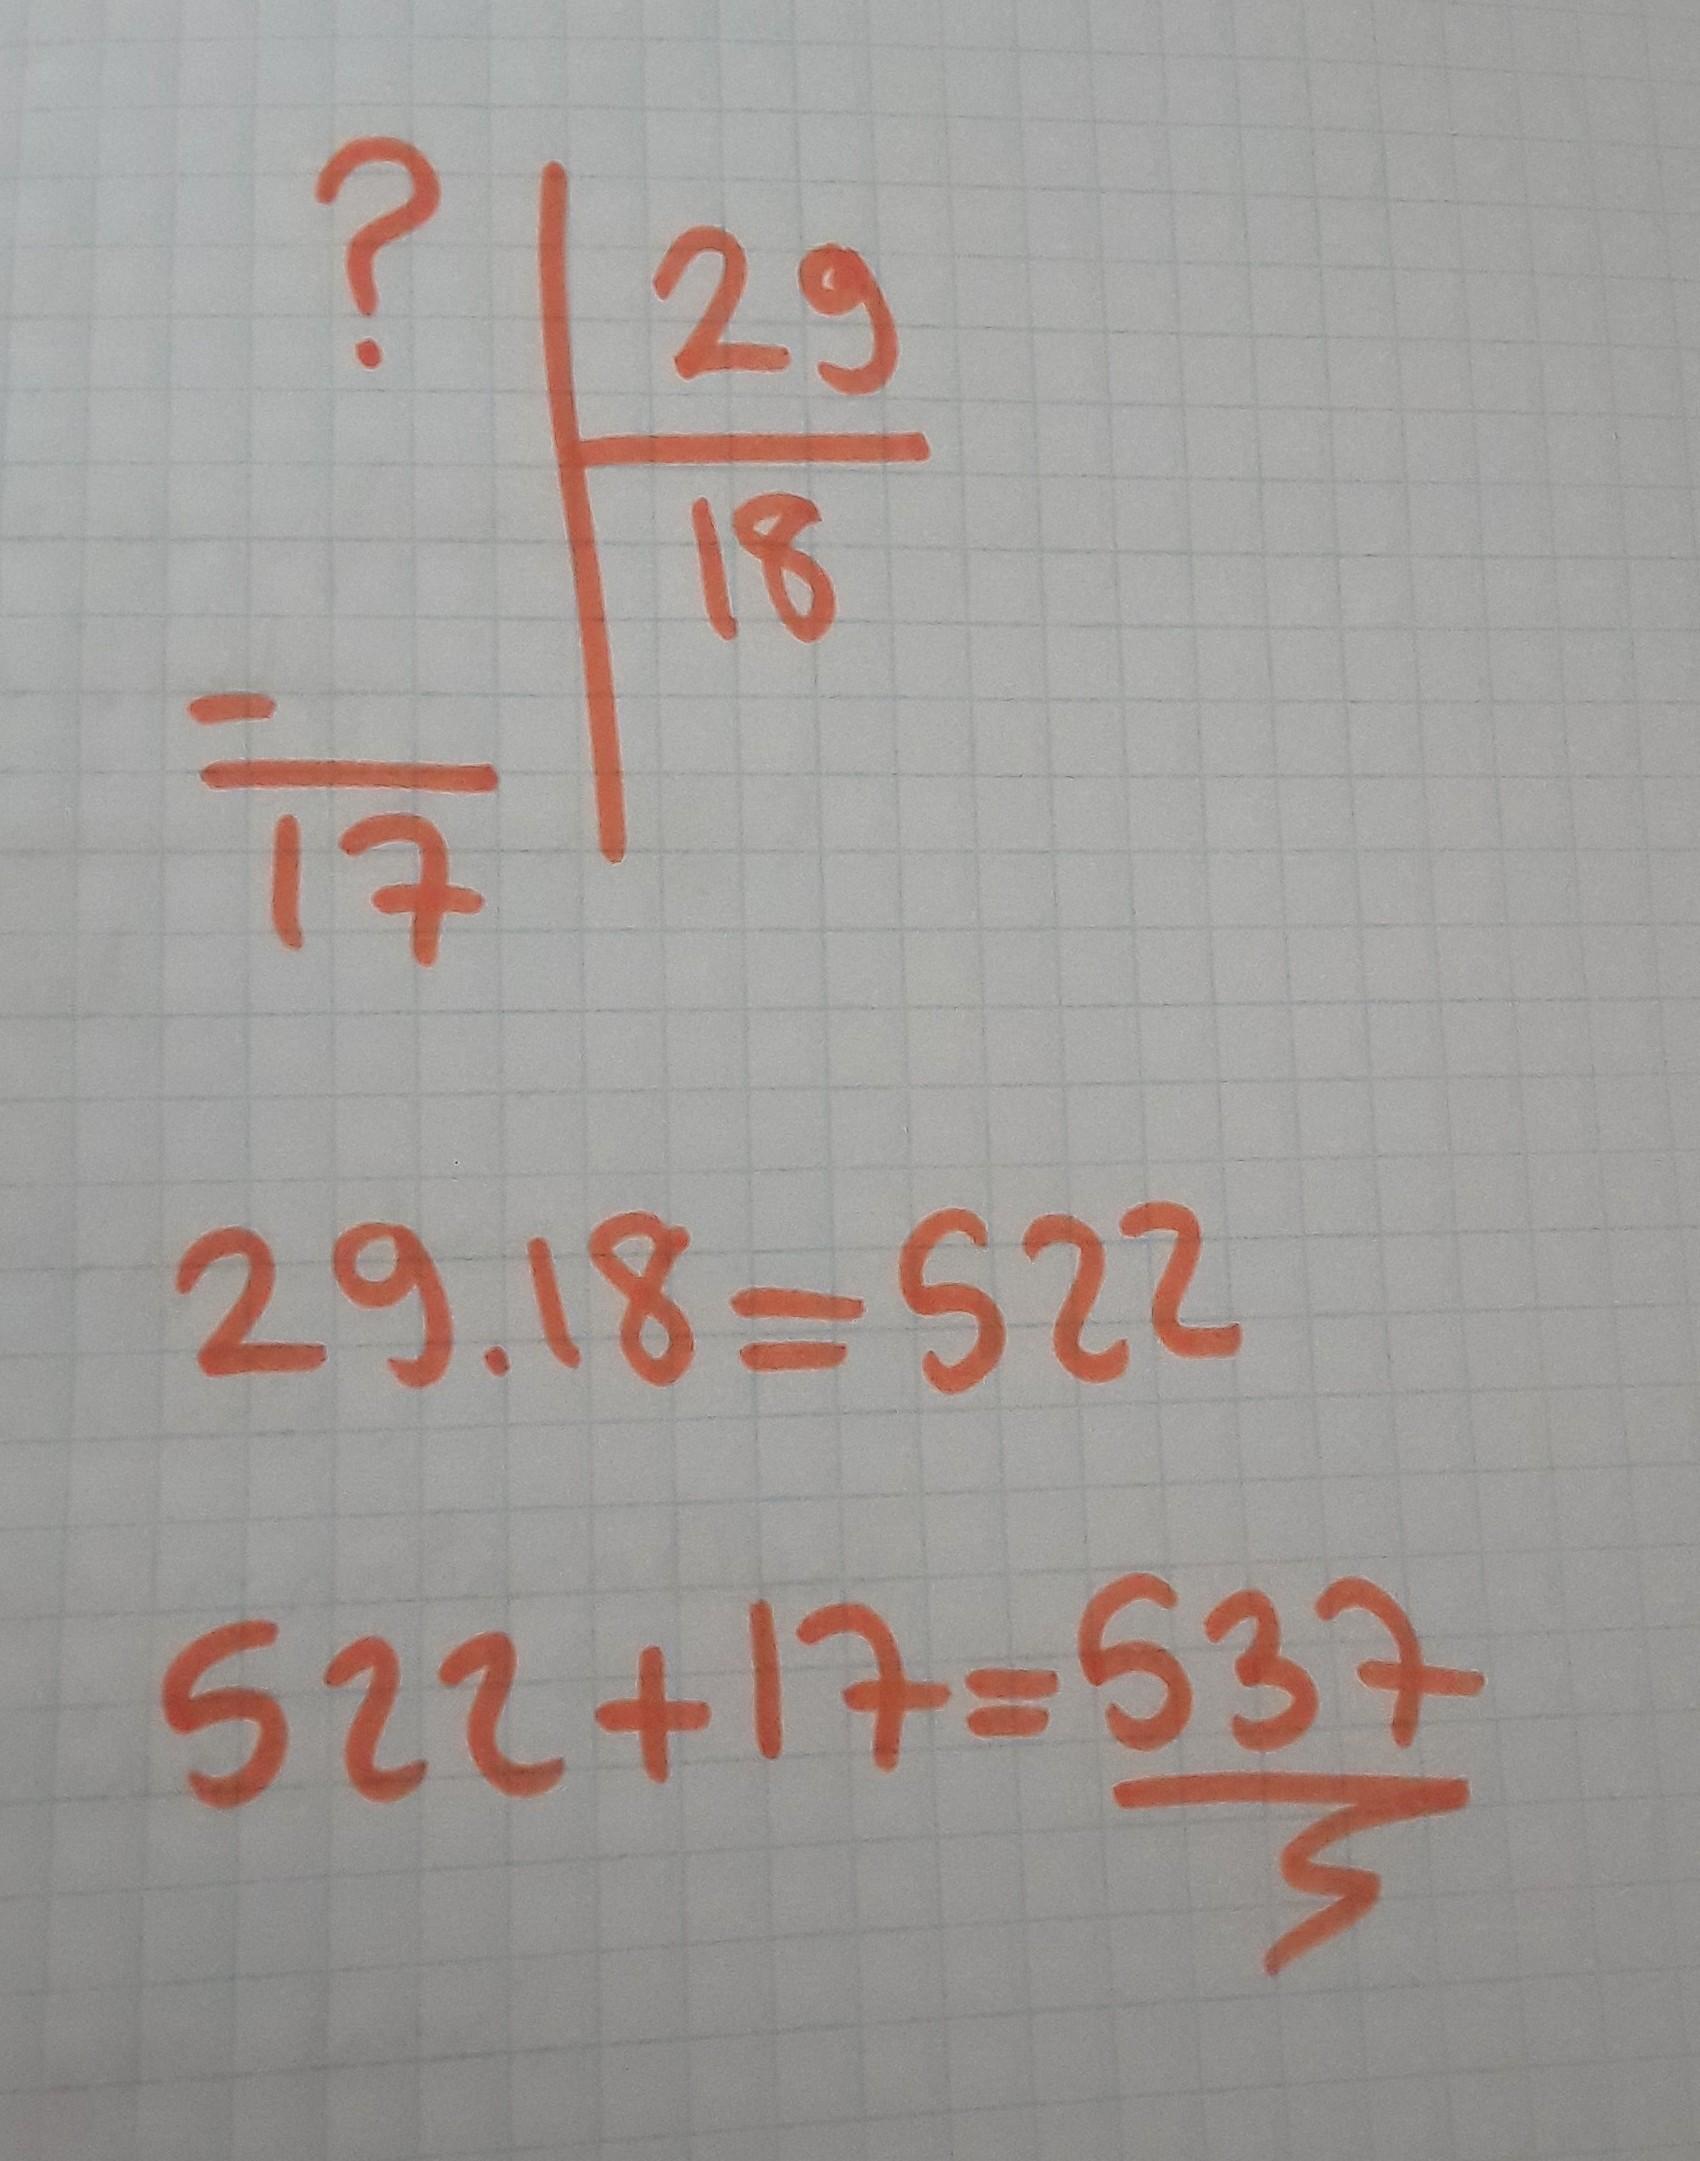 ? 29
18
-
17
29.18=522
522+17=537